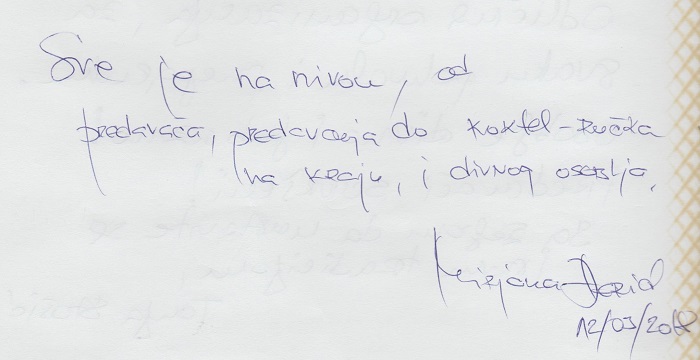 Sve je na nivou, od
predavača, predavanja do koktel-ručka
na kraju, i divnog osoblja.
Mirjana
12/03/20